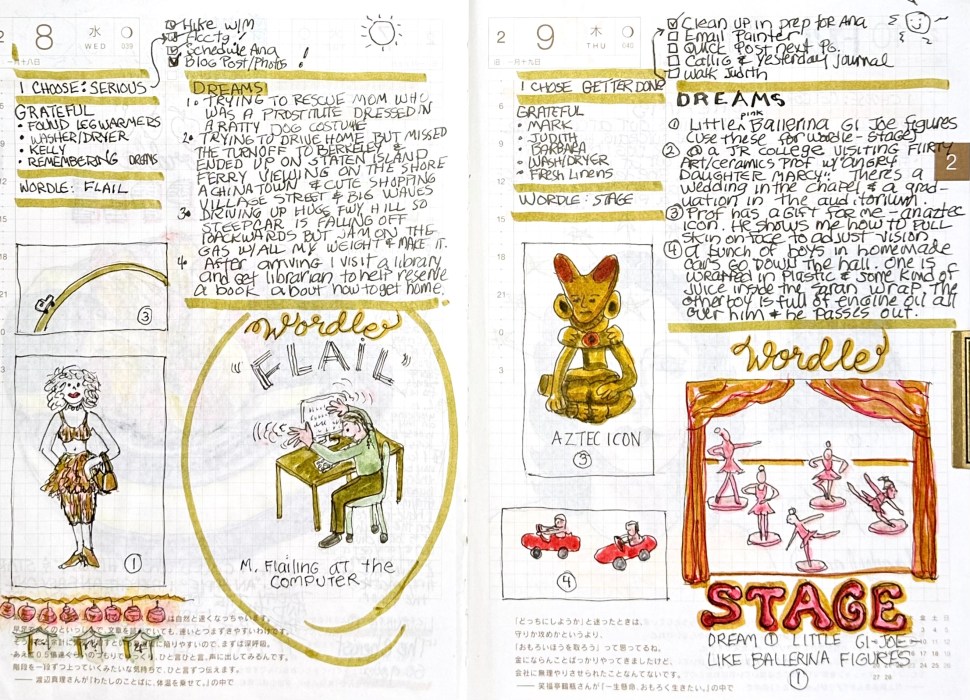 8
水
WED
039
一月十八日
Hike w/M
Accty.
Schedule Ana
Blog Post/Photos !
I CHOOSE: SERIOUS
GRATEFUL
• FOUND LEGWARMERS
• WASHER/DRYER
• KELLY
• REMEMBERING DREAMS
WORDLE: FLAIL
DREAMS
1. TRYING TO RESCUE MOM WHO
WAS A PROSTITUTE DRESSED IN
A RATTY DOG COSTUME
2. TRYING TO DRIVE HOME BUT MISSED
THE TURNOFF TO BERKELEY &
ENDED UP ON STATEN ISLAND
FERRY VIEWING ON THE SHORE
A CHINATOWN & CUTE SHOPPING
VILLAGE STREET & BIG WAVES
3. DRIVING UP HUGE FWY HILL SO
STEEP CAR IS FALLING OFF
BACKWARDS BUT JAM ON THE
GAS W/ALL MY WEIGHT & MAKE IT.
4. After arriving I visit a library
and get librarian to help reserve
a book about how to get home.
3
1
Wordle
"FLAIL"
M. Flailing at the
COMPUTER
は自然と速くなっちゃいます。
階段を一段ずつ上っていくみたいな気持ちで、ひと言ずつ伝えます。
—— 渡辺真理さんが『わたしのことばに、体温を乗せて。』の中で
2
9
木
THU
040
一月十九日
Clean up in prep for Ana
Email Painter
Quick Post next Pg.
Callig & Yesterday Journal
Walk Judith
I CHOSE GETTER DONE
GRATEFUL
• MARK
• JUDITH
• BARBARA
• WASH/DRYER
• Fresh Linens
WORDLE: STAGE
DREAMS
① Little pink Ballerina GI Joe figures
(use these for wordle - stage)
② @ a JR college visiting FLIRTY
Art/ceramics Prof w/angry
DAUGHTER MARCY. There's a
wedding in the chapel & a grad-
uation in the auditorium.
③ Prof has a GIFT for me - an aztec
icon. He shows me how to PULL
skin on face to adjust vision
④ a bunch of boys in homemade
cars go down the hall. One is
wrapped in plastic & some kind of
juice inside the saran wrap. The
other boy is full of engine oil all
over him & he passes out.
2
AZTEC ICON
3
4
Wordle
STAGE
DREAM ① LITTLE GI-JOE
LIKE BALLERINA FIGURES
1
「どっちにしようか」と迷ったときは、
守りか攻めかというより、
「おもろいほうを取ろう」って思ってるね。
金にならんことばっかりやってきましたけど、
会社に無理やりさせられたことなんてないです。
—— 笑福亭鶴瓶さんが『一生懸命、おもろく生きたい。』の中で